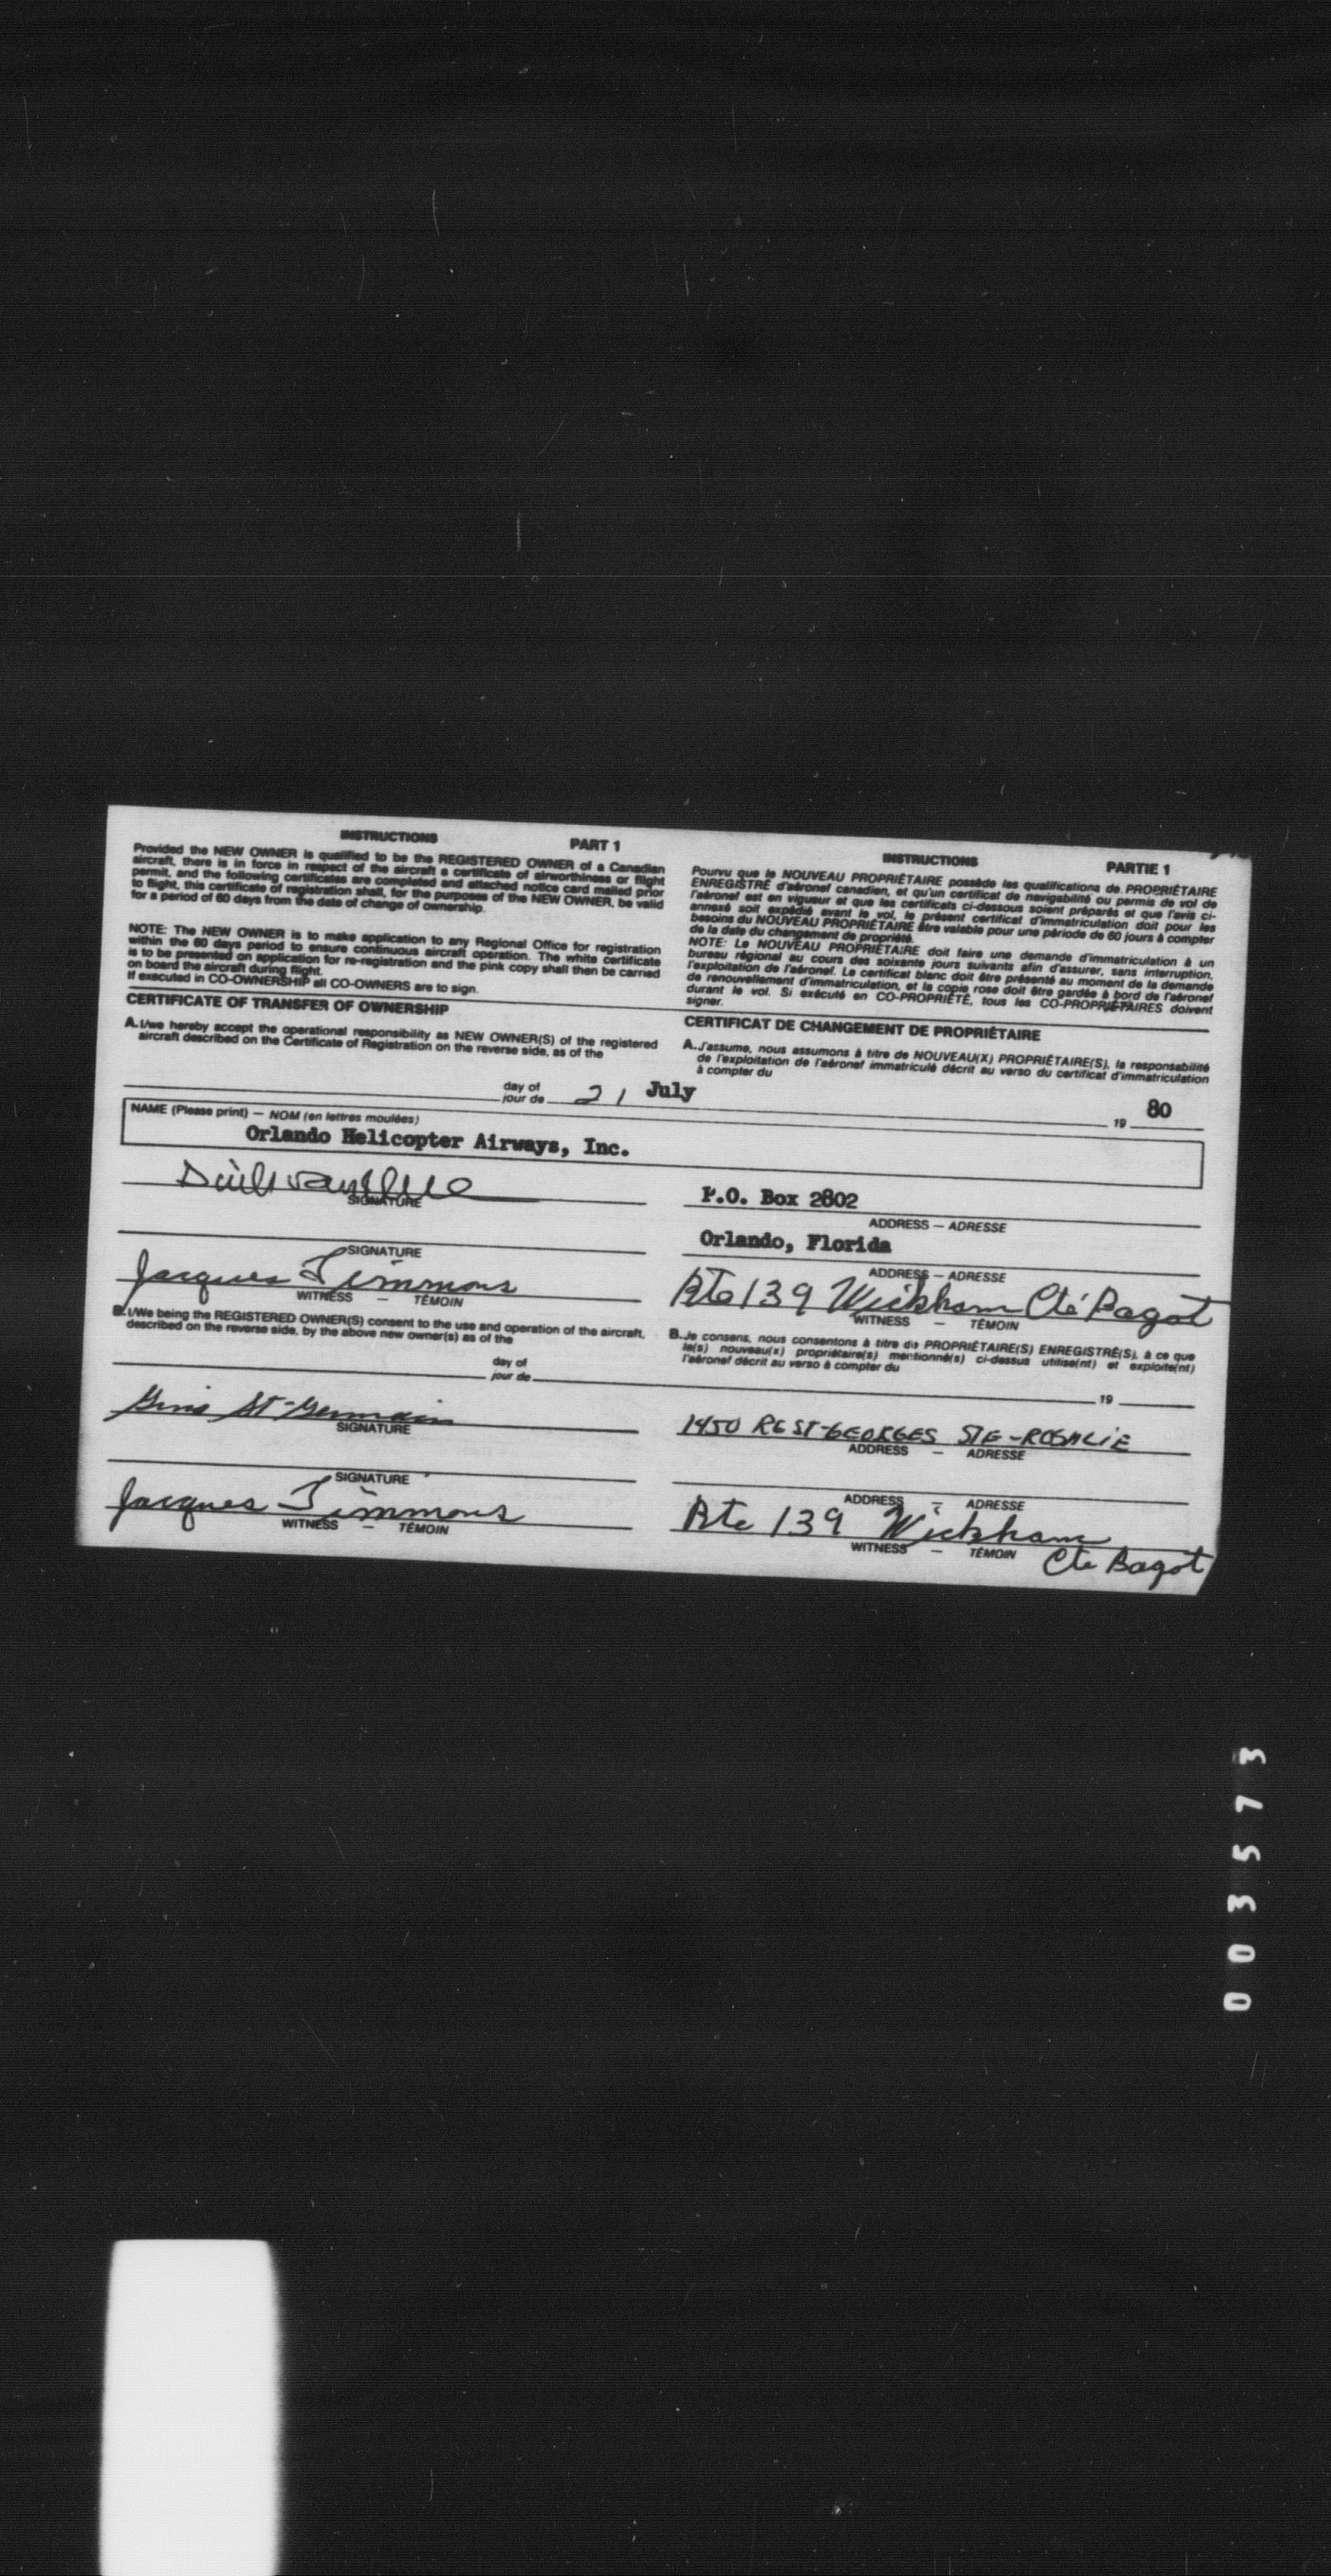 INSTRUCTIONS PART 1
Provided the NEW OWNER is qualified to be the REGISTERED OWNER of a Canadian
aircraft, there is in force in respect of the aircraft a certificate of airworthiness or flight
permit, and the following certificates are completed and attached notice card mailed prior
to flight, this certificate of registration shall, for the purposes of the NEW OWNER, be valid
for a period of 60 days from the date of change of ownership.
NOTE: The NEW OWNER is to make application to any Regional Office for registration
within the 60 days period to ensure continuous aircraft operation. The white certificate
is to be presented on application for re-registration and the pink copy shall then be carried
on board the aircraft during flight.
If executed in CO-OWNERSHIP all CO-OWNERS are to sign.
CERTIFICATE OF TRANSFER OF OWNERSHIP
A. I/we hereby accept the operational responsibility as NEW OWNER(S) of the registered
aircraft described on the Certificate of Registration on the reverse side, as of the
INSTRUCTIONS PARTIE 1
Pourvu que le NOUVEAU PROPRIÉTAIRE possède les qualifications de PROPRIÉTAIRE
ENREGISTRÉ d'aéronef canadien, et qu'un certificat de navigabilité ou permis de vol de
l'aéronef est en vigueur et que les certificats ci-dessous soient préparés et que l'avis ci-
annexé soit expédié avant le vol, le présent certificat d'immatriculation doit pour les
besoins du NOUVEAU PROPRIÉTAIRE être valable pour une période de 60 jours à compter
de la date du changement de propriété.
NOTE: Le NOUVEAU PROPRIÉTAIRE doit faire une demande d'immatriculation à un
bureau régional au cours des soixante jours suivants afin d'assurer, sans interruption,
l'exploitation de l'aéronef. Le certificat blanc doit être présenté au moment de la demande
de renouvellement d'immatriculation, et la copie rose doit être gardée à bord de l'aéronef
durant le vol. Si exécuté en CO-PROPRIÉTÉ, tous les CO-PROPRIÉTAIRES doivent
signer.
CERTIFICAT DE CHANGEMENT DE PROPRIÉTAIRE
A. J'assume, nous assumons à titre de NOUVEAU(X) PROPRIÉTAIRE(S), la responsabilité
de l'exploitation de l'aéronef immatriculé décrit au verso du certificat d'immatriculation
à compter du
day of
jour de 21 July 19 80
NAME (Please print) — NOM (en lettres moulées)
Orlando Helicopter Airways, Inc.
SIGNATURE
P.O. Box 2802
ADDRESS — ADRESSE
SIGNATURE
Orlando, Florida
ADDRESS — ADRESSE
Jacques Timmons
WITNESS — TÉMOIN
Rte 139 Wickham Cté Bagot
WITNESS — TÉMOIN
B. I/We being the REGISTERED OWNER(S) consent to the use and operation of the aircraft,
described on the reverse side, by the above new owner(s) as of the
B. Je consens, nous consentons à titre de PROPRIÉTAIRE(S) ENREGISTRÉ(S), à ce que
le(s) nouveau(x) propriétaire(s) mentionné(s) ci-dessus utilise(nt) et exploite(nt)
l'aéronef décrit au verso à compter du
day of
jour de 19
St-Germain
SIGNATURE
1450 RG ST-GEORGES STE-ROSALIE
ADDRESS — ADRESSE
SIGNATURE
ADDRESS — ADRESSE
Jacques Timmons
WITNESS — TÉMOIN
Rte 139 Wickham
WITNESS — TÉMOIN
Cte Bagot
003573